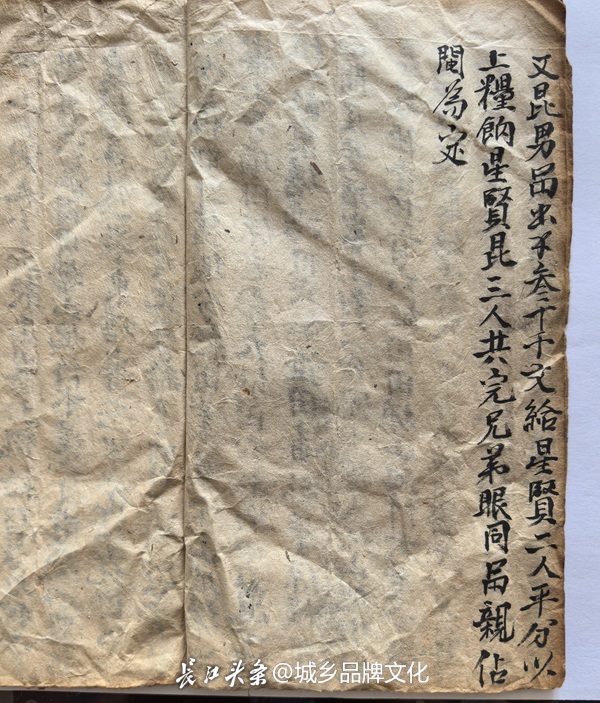 又昆男出叁千文給星賢二人平分以
上糧餉星賢昆三人共完兄弟眼同親佔
鬮為定
长江头条@城乡品牌文化